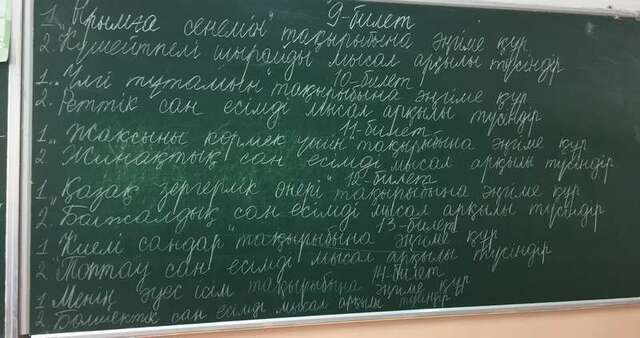 9-билет
1. "Ырымға сенемін" тақырыбына әңгіме құр
2. Күшейтпелі шырайды мысал арқылы түсіндір
10-билет
1. "Үлгі тұтамын" тақырыбына әңгіме құр
2. Реттік сан есімді мысал арқылы түсіндір
11-билет
1. "Жақсыны көрмек үшін" тақырыбына әңгіме құр
2. Жинақтық сан есімді мысал арқылы түсіндір
12-билет
1. "Қазақ зергерлік өнері" тақырыбына әңгіме құр
2. Болжалдық сан есімді мысал арқылы түсіндір
13-билет
1. "Киелі сандар" тақырыбына әңгіме құр
2. Топтау сан есімді мысал арқылы түсіндір
14-билет
1. Менің әуес ісім тақырыбына әңгіме құр
2. Бөлшектік сан есімді мысал арқылы түсіндір